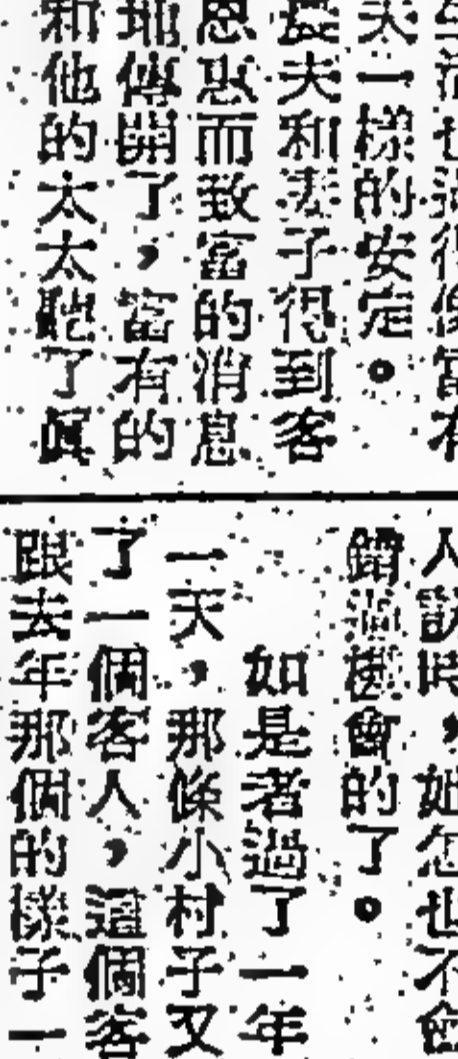 年
太一樣的安定。
農夫和妻子得到客
恩惠而致富的消息
地傳開了，富有的
和他的太太聽了真
人說時，她怎也不會
錯過機會的了。
如是者過了一年
一天，那條小村子又
了一個客人，這個客
跟去年那個的樣子一